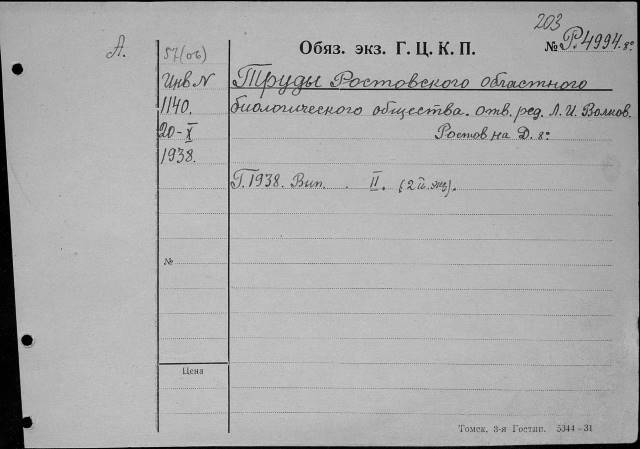 203
А.
57(06)
Обяз. экз. Г. Ц. К. П.
№ Р.4994. 8°
Инв N
1140.
20-X
1938.
Труды Ростовского областного
биологического общества. отв. ред. Л. И. Волков.
Ростов на Д. 8°
Г. 1938. Вип. II. (2й. экз).
№
Цена
Томск. 3-я Гостип. 5344-31